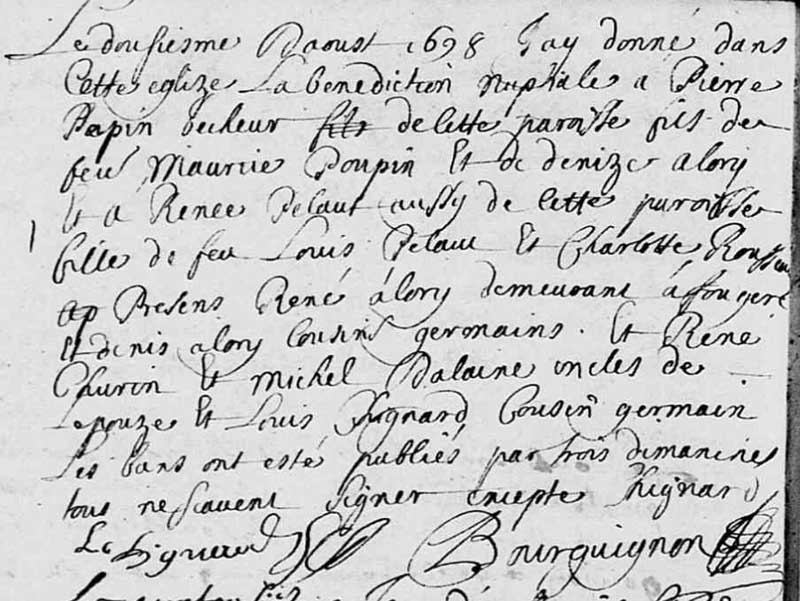 Le dousiesme Daoust 1698 Jay donné dans
Cette eglize La benediction nuptiale a Pierre
Papin becheur fils de cette paroisse fils de
feu Maurcie Poupin Et de denize alory
Et a Renee Pelaut aussy de cette paroisse
fille de feu Louis Pelaut Et Charlotte Rousseau
Presens René alory demeurant a fougeré
Et denis alory Cousins germains . Et René
Et Michel Dalaine oncles de
Lepouze Et Louis Cousin germain
Les bans ont esté publiés par trois dimanches
tous ne scavent signer excepte
Bourguignon